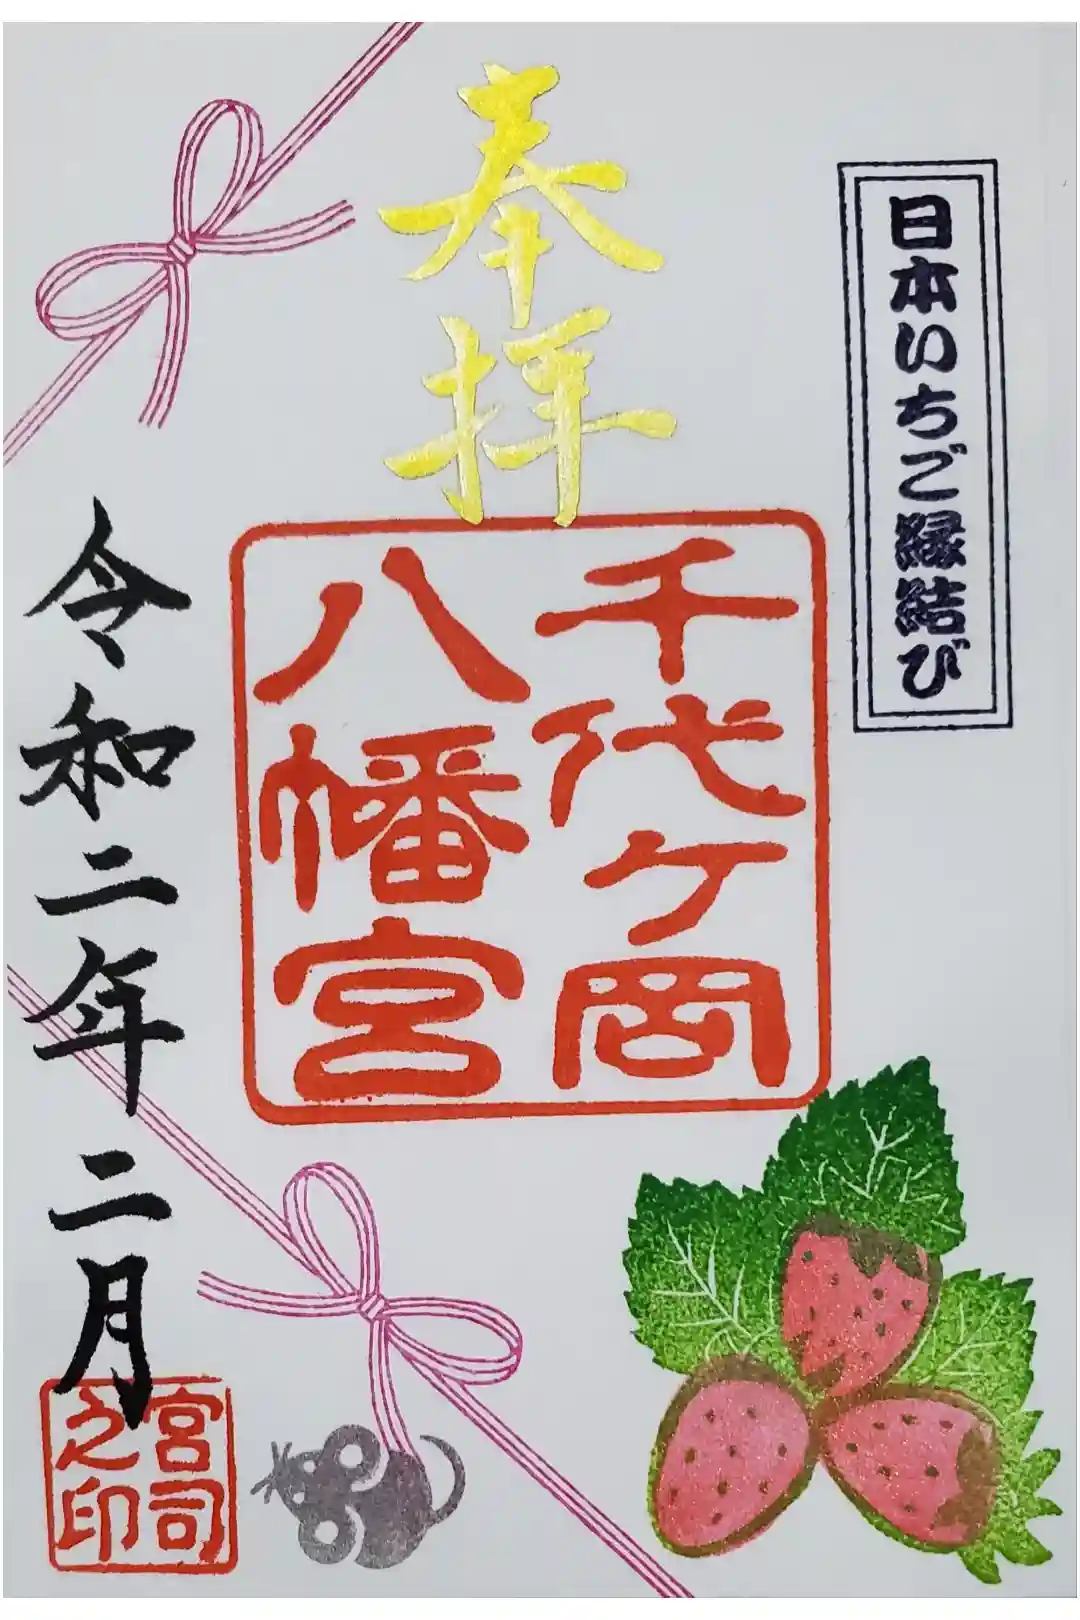 日本いちご縁結び
奉拝
千代ケ岡
八幡宮
令和二年 二月
宮司
之印